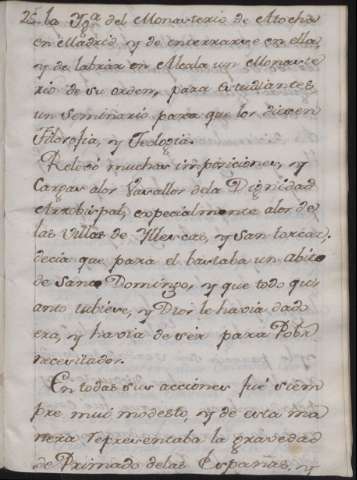 la Ygª. del Monasterio de Atocha
en Madrid, y de enterrarse en ella,
y de labrar en Alcala un Monaste-
rio de su orden, para estudiantes
un seminario para que los diesen
Filosofia, y Teologia.
Relevó muchas imposiciones, y
Cargas alos Vasallos dela Dignidad
Arzobispal, especialmente alos de
las Villas de Yllescas, y San torcaz,
decia que para el bastaba un abito
de Santo Domingo, y que todo qu-
anto tubiese, y Dios le havia dado
era, y havia de sér para Pobres
necesitados.
En todas sus acciones fué siem
pre mui modesto, y de esta ma
nera representaba la gravedad
de Primado delas Españas, y